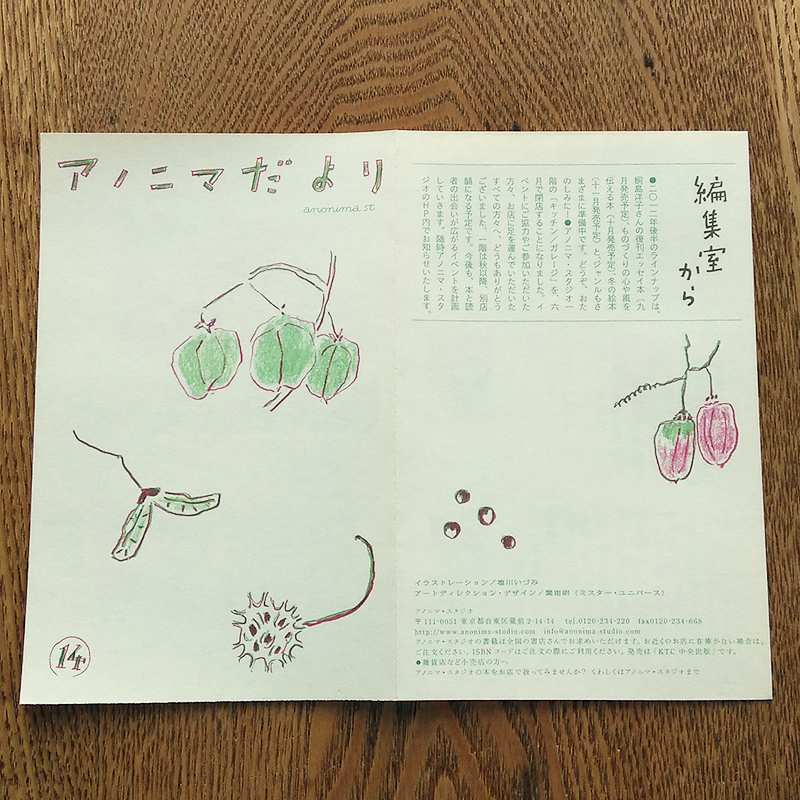 アノニマだより
anonima st
14
編集室から
●二〇一二年後半のラインナップは、
桐島洋子さんの復刊エッセイ本（九
月発売予定）、ものづくりの心や風を
伝える本（十月発売予定）、冬の絵本
（十一月発売予定）と、ジャンルもさ
まざまに準備中です。どうぞ、おた
のしみに！●アノニマ・スタジオ一
階の「キッチン／ガレージ」を、六
月で閉店することになりました。イ
ベントにご協力やご参加いただいた
方々、お店に足を運んでいただいた
すべての方々へ、どうもありがとう
ございました。一階は秋以降、別店
舗になる予定です。今後も、本と読
者の出会いが広がるイベントを計画
していきます。随時アノニマ・スタ
ジオのHP内でお知らせいたします。
イラストレーション／塩川いづみ
アートディレクション・デザイン／関宙明（ミスター・ユニバース）
アノニマ・スタジオ
〒111-0051 東京都台東区蔵前2-14-14 tel.0120-234-220 fax0120-234-668
http://www.anonima-studio.com info@anonima-studio.com
アノニマ・スタジオの書籍は全国の書店さんでお求めいただけます。お近くのお店に在庫がない場合は、
ご注文ください。ISBNコードはご注文の際にご利用ください。発売は「KTC中央出版」です。
●雑貨店など小売店の方へ
アノニマ・スタジオの本をお店で扱ってみませんか？ くわしくはアノニマ・スタジオまで